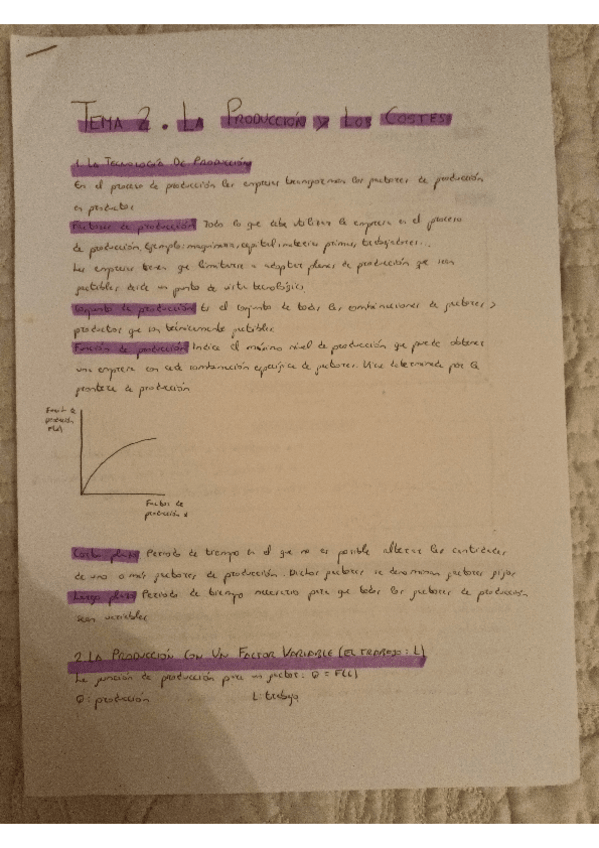 TEMA 2. LA PRODUCCIÓN Y LOS COSTES
1. LA TECNOLOGÍA DE PRODUCCIÓN
En el proceso de producción las empresas transforman los factores de producción
en productos
Factores de producción Todo lo que debe utilizar la empresa en el proceso
de producción, Ejemplo: maquinaria, capital, materias primas, trabajadores...
Las empresas tienen que limitarse a adoptar planes de producción que sean
factibles desde un punto de vista tecnológico.
Conjunto de producción Es el conjunto de todas las combinaciones de factores y
productos que son técnicamente factibles
Función de producción Indica el máximo nivel de producción que puede obtener
una empresa con cada combinación específica de factores. Viene determinada por la
frontera de producción
Función de
producción
F(x)
Factores de
producción x
Corto plazo Periodo de tiempo en el que no es posible alterar las cantidades
de uno o más factores de producción. Dichos factores se denominan factores fijos
Largo plazo Periodo de tiempo necesario para que todos los factores de producción
sean variables
2. LA PRODUCCIÓN CON UN FACTOR VARIABLE (EL TRABAJO: L)
La función de producción para un factor: Q = F(L)
Q: producción L: trabajo